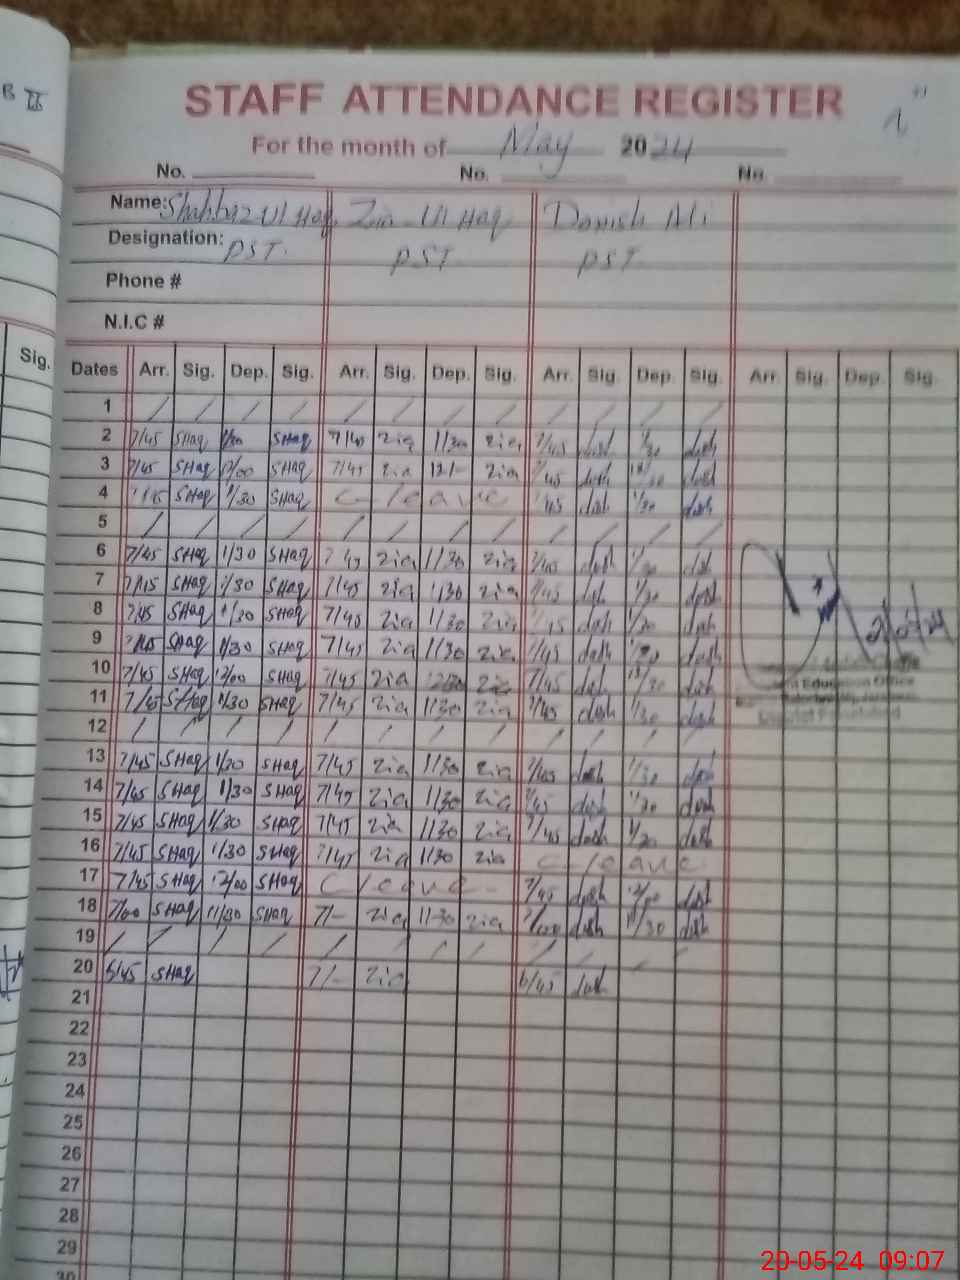 B II
STAFF ATTENDANCE REGISTER
For the month of May 2024
No. No. No.
Name: Shahbaz Ul Haq Zia Ul Haq Danish Ali
Designation: PST. PST PST
Phone #
N.I.C #
Sig.
Dates Arr. Sig. Dep. Sig. Arr. Sig. Dep. Sig. Arr. Sig. Dep. Sig. Arr. Sig. Dep. Sig.
1 / / / / / / / / / / / /
2 7/45 SHaq SHaq 7/40 Zia 1/30 Zia 7/45 dash 1/30 dash
3 7/45 SHaq SHaq 7/45 Zia 12/- Zia 7/45 dash dash
4 SHaq 1/30 SHaq C-leave dash 1/30 dash
5 / / / / / / / / / / / /
6 7/45 SHaq 1/30 SHaq 7/45 Zia 1/30 Zia 7/45 dash dash
7 SHaq 1/30 SHaq 7/45 Zia 1/30 Zia 7/45 dash 1/30 dash
8 7/45 SHaq 1/30 SHaq 7/45 Zia 1/30 Zia dash 1/30 dash
9 7/45 SHaq 1/30 SHaq 7/45 Zia 1/30 Zia 7/45 dash dash
10 7/45 SHaq 12/00 SHaq 7/45 Zia Zia 7/45 dash dash
Education Office
11 7/45 SHaq 1/30 SHaq 7/45 Zia 1/30 Zia 7/45 dash 1/30 dash
12 / / / / / / / / / / / /
13 7/45 SHaq 1/30 SHaq 7/45 Zia 1/30 Zia 7/45 dash 1/30 dash
14 7/45 SHaq 1/30 SHaq 7/45 Zia 1/30 Zia 7/45 dash 1/30 dash
15 7/45 SHaq 1/30 SHaq 7/45 Zia 1/30 Zia 7/45 dash 1/30 dash
16 7/45 SHaq 1/30 SHaq 7/45 Zia 1/30 Zia C-leave
17 7/45 SHaq 12/00 SHaq C-leave 7/45 dash 12/00 dash
18 7/00 SHaq 11/30 SHaq 7/- Zia 11-30 Zia 7/00 dash 11/30 dash
19 / / / / / / / / / / / /
20 6/45 SHaq 7/- Zia 6/45 dash
21
22
23
24
25
26
27
28
29
30
20-05-24 09:07